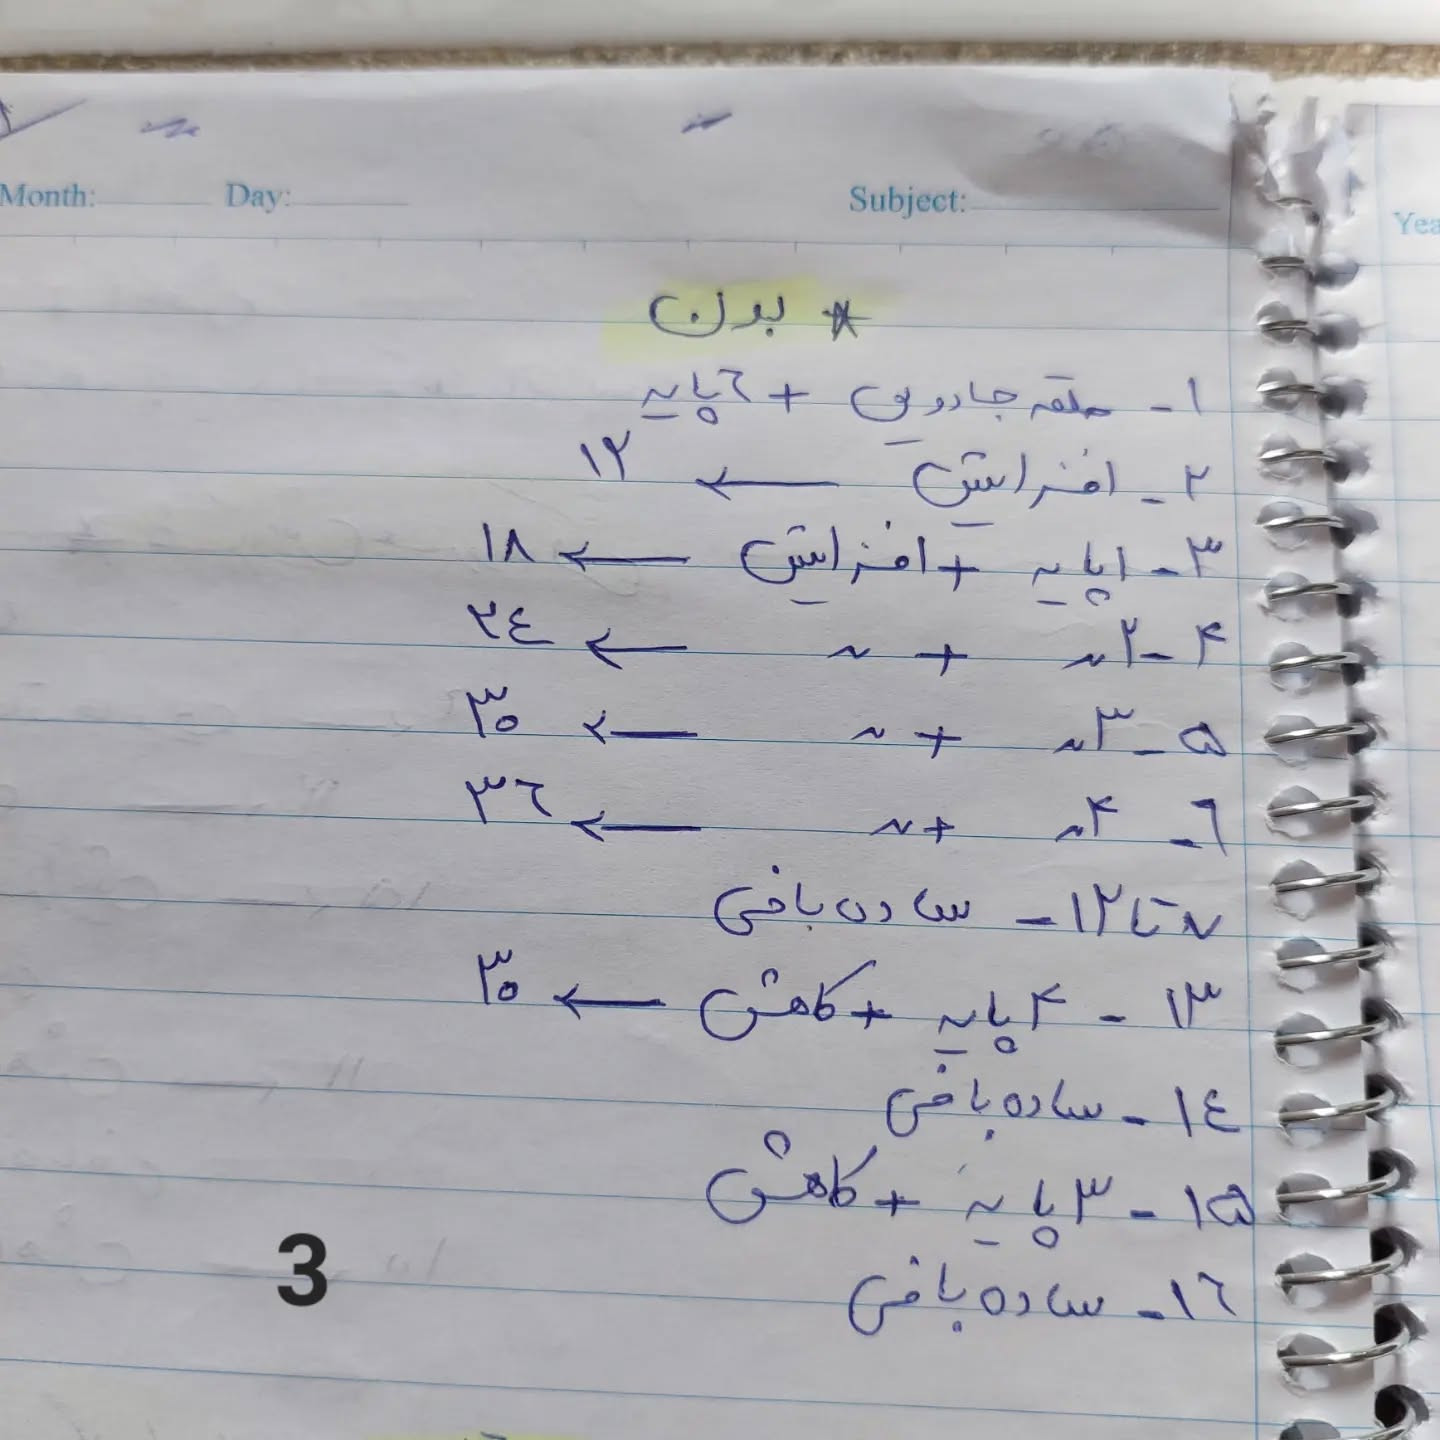 Month: Day: Subject:
Yea
* بدن
۱- حلقه جادویی + ٦ پایه
۲- افزایش ← ۱۲
۳- ۱ پایه + افزایش ← ۱۸
۴- ۲ ~ + ~ ← ۲٤
۵- ۳ ~ + ~ ← ۳۰
٦- ۴ ~ + ~ ← ۳٦
۷ تا ۱۲- ساده بافی
۱۳- ۴ پایه + کاهش ← ۳۰
۱٤- ساده بافی
۱۵- ۳ پایه + کاهش
۱٦- ساده بافی
3